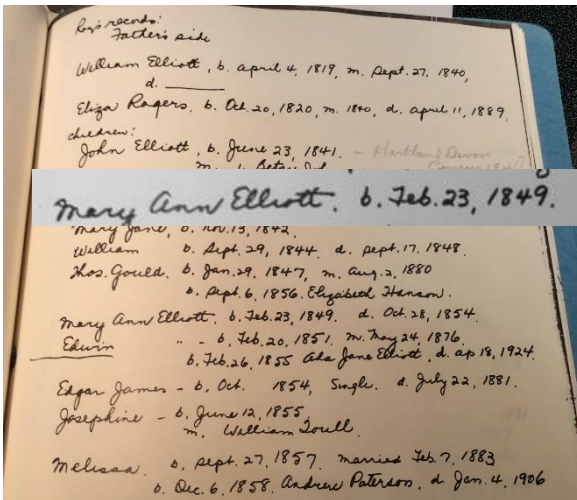 Roy's records:
Father's side
William Elliott, b. April 4, 1819, m. Sept. 27, 1840,
d.
Eliza Rogers. b. Oct. 20, 1820, m. 1840, d. April 11, 1889.
children:
John Elliott, b. June 23, 1841. - Hartland Devon
Mary Ann Elliott. b. Feb. 23, 1849.
Mary Jane, b. Nov. 13, 1842.
William b. Sept. 29, 1844. d. Sept. 17. 1848.
Thos. Gould. b. Jan. 29, 1847, m. Aug. 2, 1880
b. Sept. 6, 1856. Elizabeth Hanson.
Mary Ann Elliott. b. Feb. 23, 1849. d. Oct. 28, 1854.
Edwin " - b. Feb. 20, 1851. m. May 24, 1876.
b. Feb. 26, 1855 Ada Jane Elliott, d. Ap 18, 1924.
Edgar James - b. Oct. 1854, Single. d. July 22, 1881.
Josephine - b. June 12, 1855.
m. William
Melissa. b. Sept. 27, 1857. married Feb. 7, 1883
b. Dec. 6, 1858. Andrew Paterson, d Jan. 4, 1906